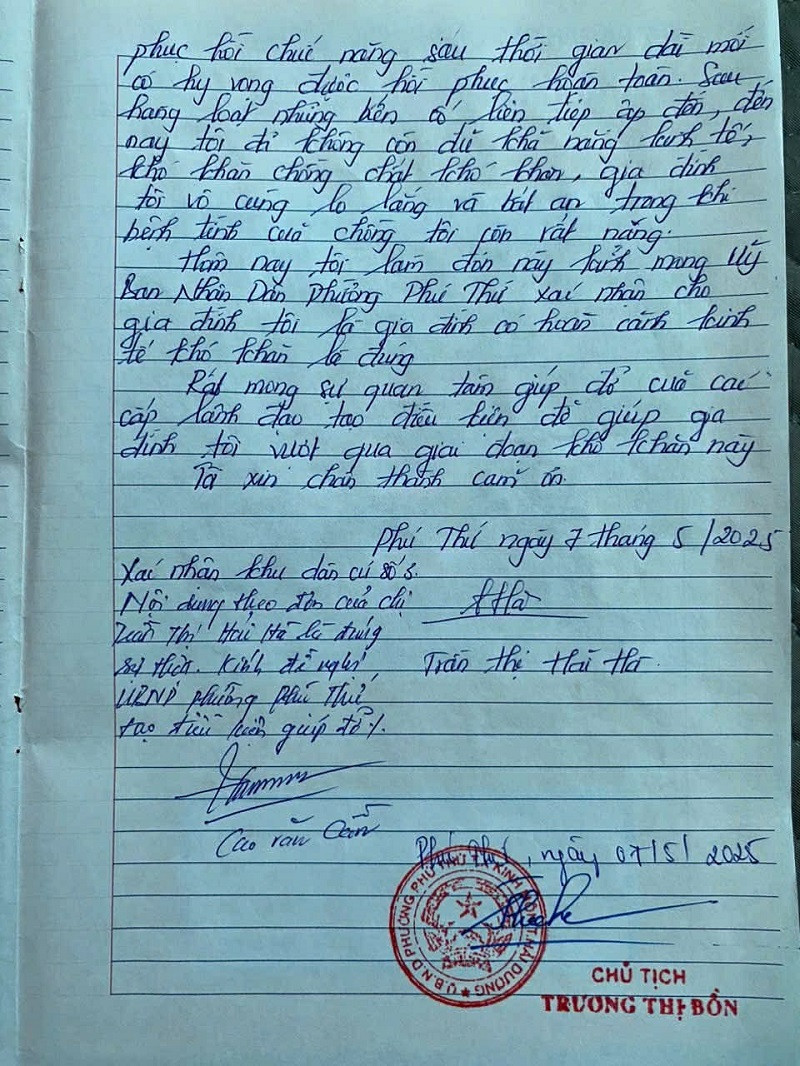 phục hồi chức năng sau thời gian dài mới
có hy vọng được hồi phục hoàn toàn. Sau
hàng loạt những biến cố liên tiếp ập đến, đến
nay tôi đã không còn đủ khả năng kinh tế,
khó khăn chồng chất khó khăn, gia đình
tôi vô cùng lo lắng và bất an trong khi
bệnh tình của chồng tôi còn rất nặng.
Hôm nay tôi làm đơn này kính mong Uỷ
Ban Nhân Dân Phường Phú Thứ xác nhận cho
gia đình tôi là gia đình có hoàn cảnh kinh
tế khó khăn là đúng
Rất mong sự quan tâm giúp đỡ của các
cấp lãnh đạo tạo điều kiện để giúp gia
đình tôi vượt qua giai đoạn khó khăn này
Tôi xin chân thành cảm ơn.
Phú Thứ ngày 7 tháng 5/2025
Xác nhận khu dân cư số 3.
Nội dung theo đơn của chị
Trần Thị Hải Hà là đúng
sự thật. Kính đề nghị
UBND phường Phú Thứ
tạo điều kiện giúp đỡ./.
Hà
Trần Thị Hải Hà
Cao Văn
Phú Thứ, ngày 07/5/2025
U.B.N.D PHƯỜNG PHÚ THỨ T.X KINH MÔN T.HẢI DƯƠNG
CHỦ TỊCH
TRƯƠNG THỊ BỒN